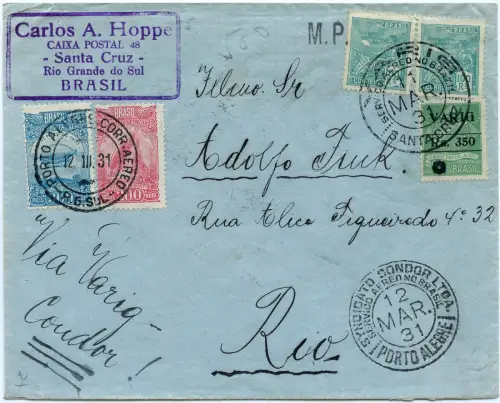 Carlos A. Hoppe
CAIXA POSTAL 48
- Santa Cruz -
Rio Grande do Sul
BRASIL
M.P.
BRASIL
VARIG
1
MAR.
31
SERVIÇO AEREO NO BRASIL
SANTA CRUZ
VARIG
Rs. 350
BRASIL
PORTO ALEGRE CORR. AEREO
12 III 31
R.G. SUL
Illmo. Sr
Adolfo Funk.
Rua Alice Figueiredo 4º 32
Rio
"Via Varig-
Condor!"
SYNDICATO CONDOR LTDA.
SERVIÇO AEREO NO BRASIL
12
MAR.
31
PORTO ALEGRE